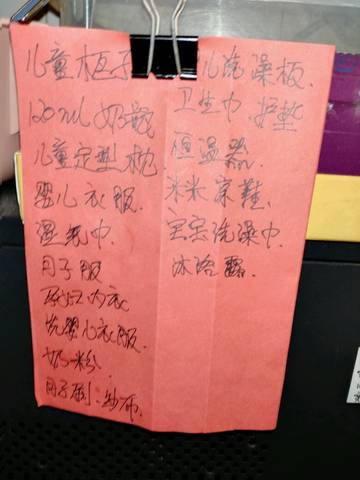 儿童柜子
120ml 奶瓶
儿童定型枕
婴儿衣服.
湿纸巾.
月子服
内衣
洗婴儿衣服.
奶粉.
月子刷.纱布.
儿洗澡板.
卫生巾.护垫
恒温器.
米米家鞋.
宝宝洗澡巾.
沐浴露.